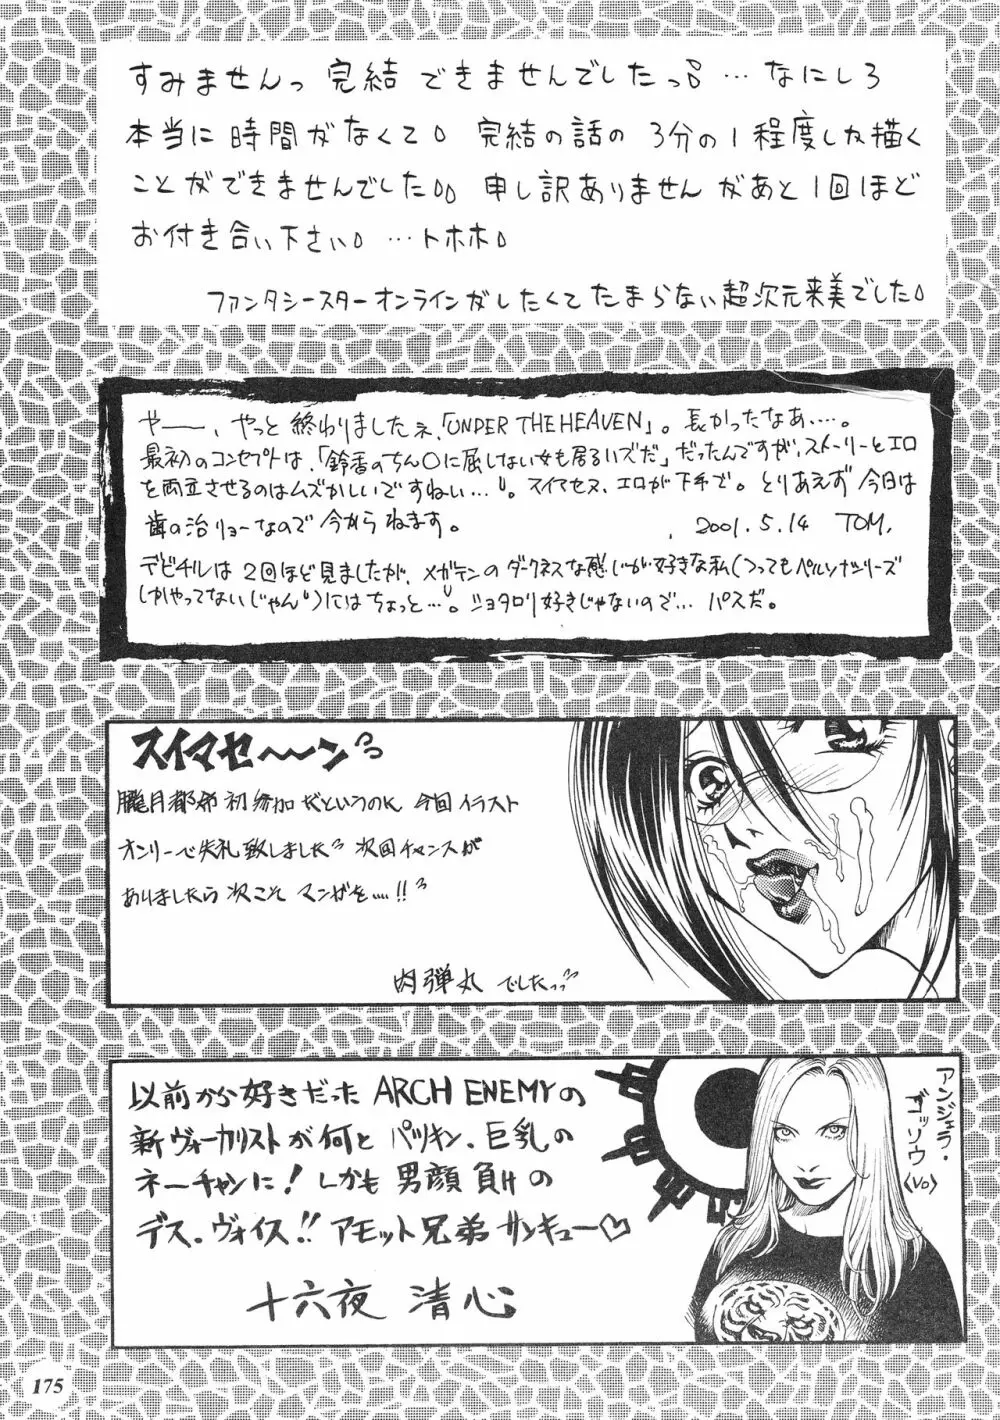 すみませんっ 完結 できませんでしたっ。… なにしろ
本当に 時間がなくて。 完結の話の 3分の1 程度しか描く
ことができませんでした。。 申し訳ありませんがあと1回ほど
お付き合い下さい。…トホホ。
ファンタシースターオンラインがしたくてたまらない超次元来美でした。
やー、やっと終わりましたネ、「UNDER THE HEAVEN」。長かったなあ……。
最初のコンセプトは、「鈴香のちん○に屈しない女も居るハズだ」だったんですが、ストーリーとエロ
を両立させるのはムズかしいですねい…。スイマセヌ、エロが下手で。とりあえず今日は
歯の治リョーなので今からねます。 2001.5.14 TOM.
デビチルは2回ほど見ましたが、メガテンのダークネスな感じが好きな私(つってもペルソナシリーズ
しかやってないじゃん)にはちょっと…。ショタロリ好きじゃないので… パスだ。
スイマセ〜〜ンっ
朧月都市初参加だというのに 今回イラスト
オンリーで失礼致しましたっ 次回チャンスが
ありましたら次こそ マンガを……!!
肉弾丸 でしたっっ
以前から好きだった ARCH ENEMYの
新ヴォーカリストが何と パツキン、巨乳の
ネーチャンに! しかも男顔負けの
デス・ヴォイス!! アモット兄弟サンキュー♡
十六夜 清心
アンジェラ・
ゴッソウ
〈Vo〉
175